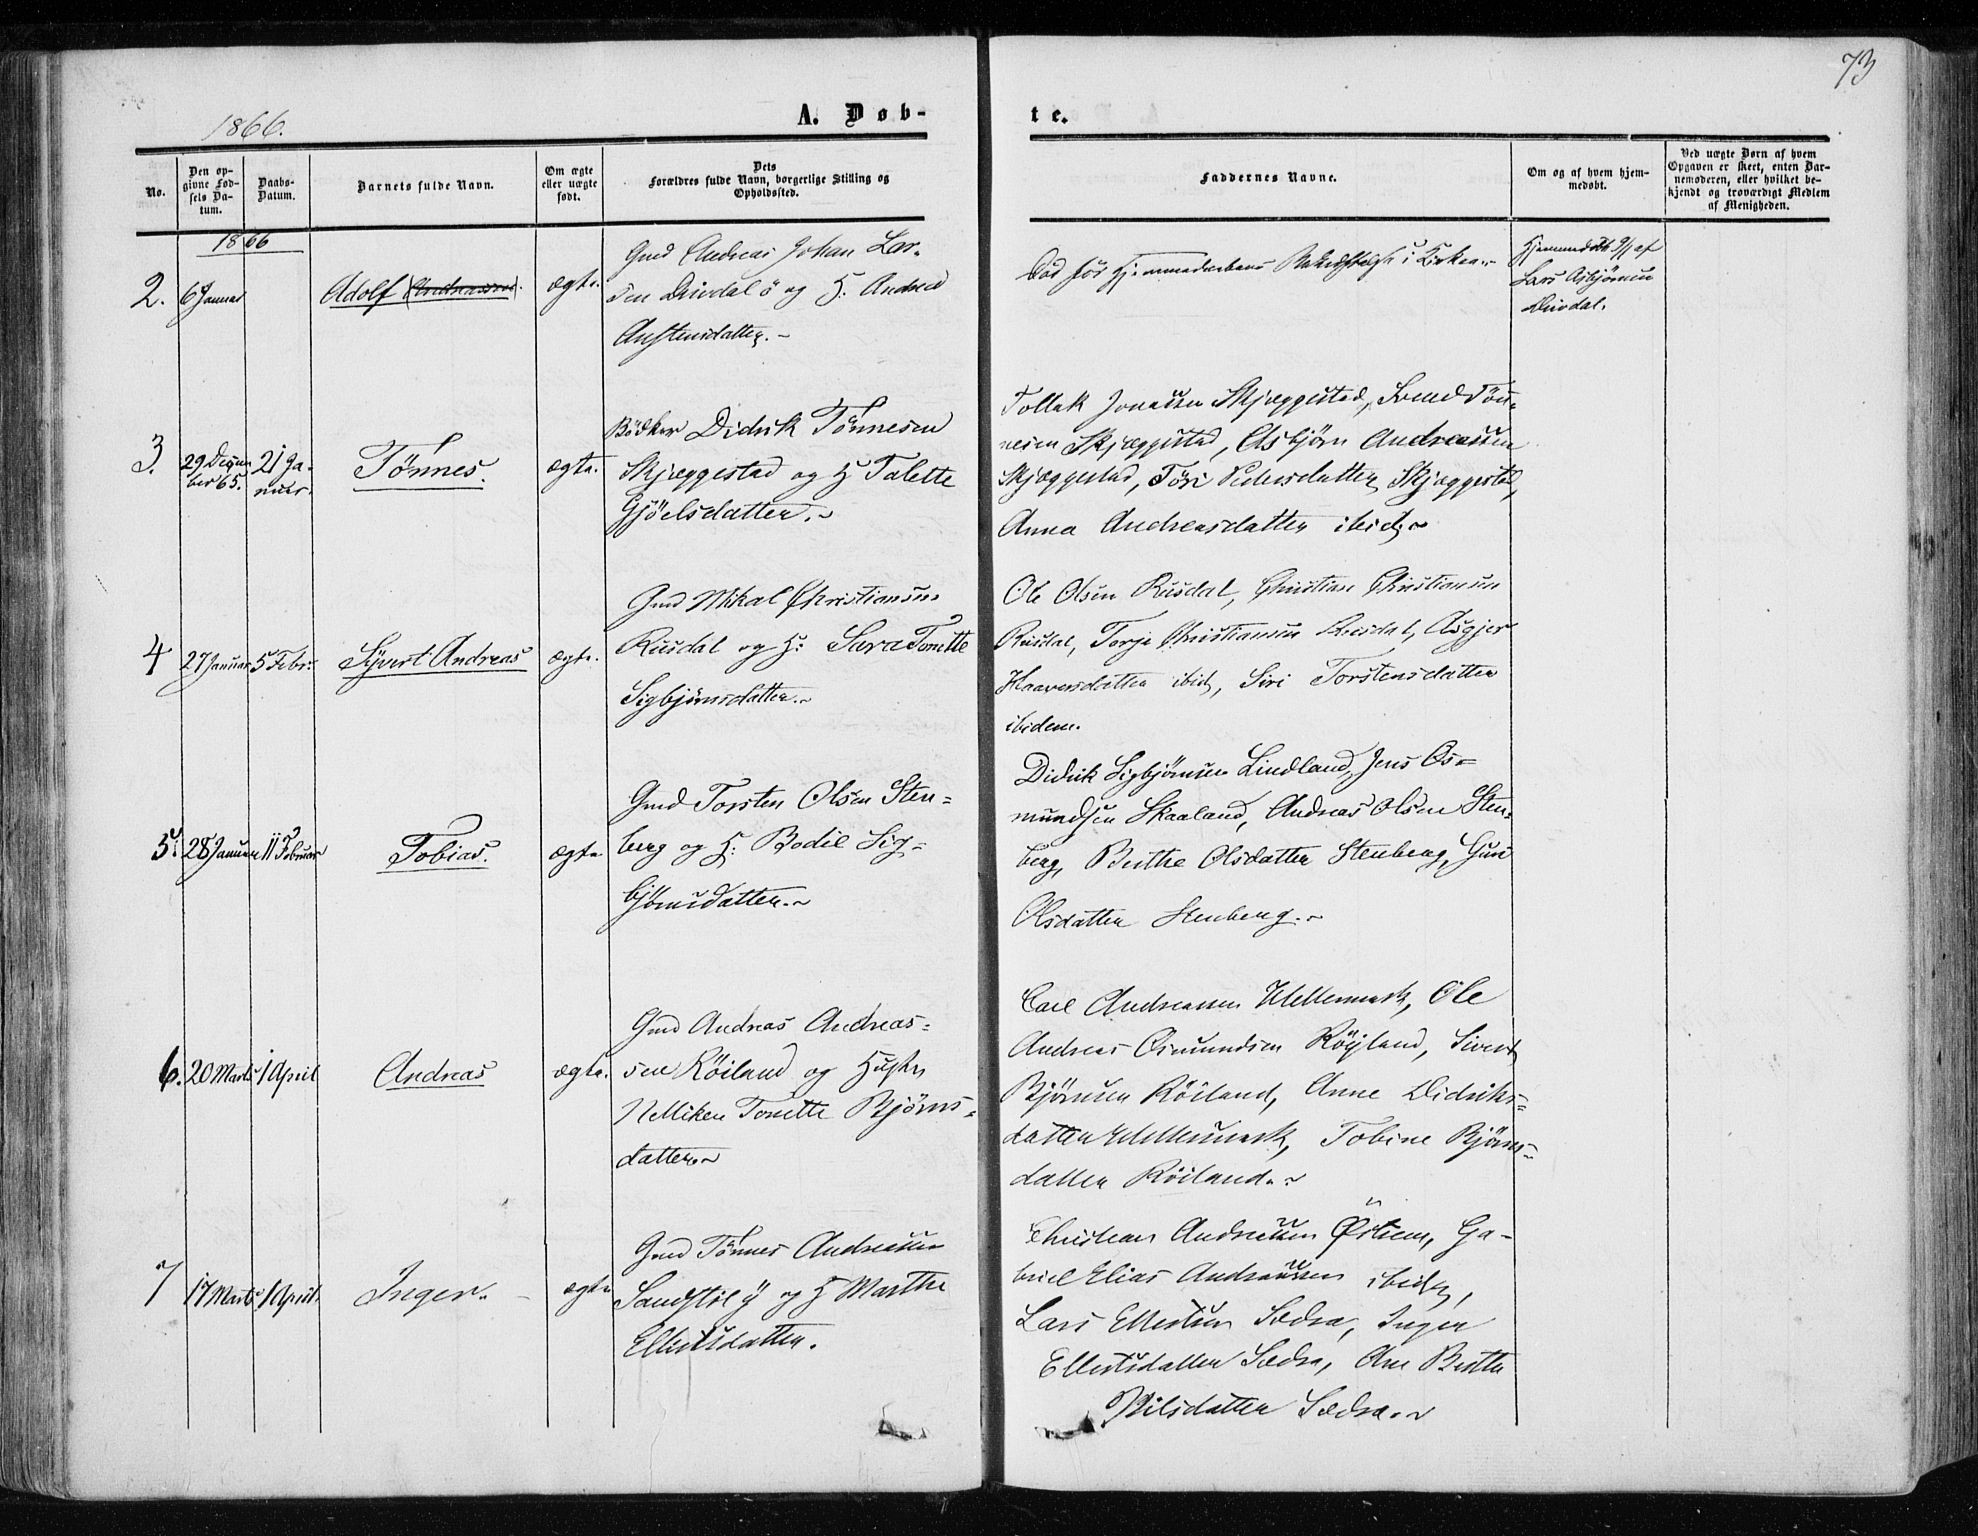 73
1866.
A. Døb-
te.
No.
Den op-
givne Fød-
sels Da-
tum.
Daabs-
Datum.
Barnets fulde Navn.
Om ægte
eller uægte
født.
Dets
Forældres fulde Navn, borgerlige Stilling og
Opholdssted.
Faddernes Navne.
Om og af hvem hjem-
medøbt.
Ved uægte Børn af hvem
Opgaven er skeet, enten Bar-
nemoderen, eller hvilket be-
kjendt og troværdigt Medlem
af Menigheden.
1866
2.
6 Januar
Adolf (Andreassen)
ægte.
Gmd Andreas Johan Lar-
sen Drivdal ö og H. Andrea
Anstensdatter.-
Död för Hjemmedaabens i Kirken.-
Hjemmedöbt 9/1 af
Lars Asbjörnsen
Drivdal.
3.
29 Decem
ber 65.
21 Ja-
nuar.
Tönnes.
ægte.
Bödker Didrik Tönnesen
Skjæggestad og H Talette
Gjöelsdatter.~
Tollak Jonassen Skjæggestad, Svend Tön-
nesen Skjæggestad, Asbjörn Andreassen
Skjæggestad, Töri Pedersdatter Skjæggestad,
Anna Andreasdatter ibid.~
4
27 Januar
5 Febr.
Syvert Andreas
ægte.
Gmd Mikal Christiansen
Rusdal og H: Sara Tonette
Sigbjörnsdatter.~
Ole Olsen Rusdal, Christian Christiansen
Rusdal, Torje Christiansen Rusdal, Asgjer
Haaversdatter ibid, Siri Torstensdatter
ibidem.
5.
28 Januar
11 Februar
Tobias.
ægte
Gmd Torsten Olsen Sten-
berg og H: Bodil Sig-
björnsdatter.~
Didrik Sigbjörnsen Lindland, Jens Os-
mundsen Skaaland, Andreas Olsen Sten-
berg, Berthe Olsdatter Stenberg, Guri
Olsdatter Stenberg.~
6.
20 Marts
1 April
Andreas
ægte.
Gmd Andreas Andreas-
sen Röiland og Hustru
Nelliken Tonette Björns-
datter.~
Carl Andreassen Mellemark, Ole
Andreas Osmundsen Röyland, Sivert
Björnsen Röiland, Anne Didriks-
datter Mellemark, Tobine Björns-
datter Röiland.~
7
17 Marts
1 April.
Inger.
ægte
Gmd Tönnes Andreassen
Sandstöl y og H Marthe
Ellertsdatter.
Christian Andreassen Östrem, Ga-
briel Elias Andreassen ibid,
Lars Ellertsen Sædra, Inger
Ellertsdatter Sædra, Ane Berthe
Nilsdatter Sædra.~